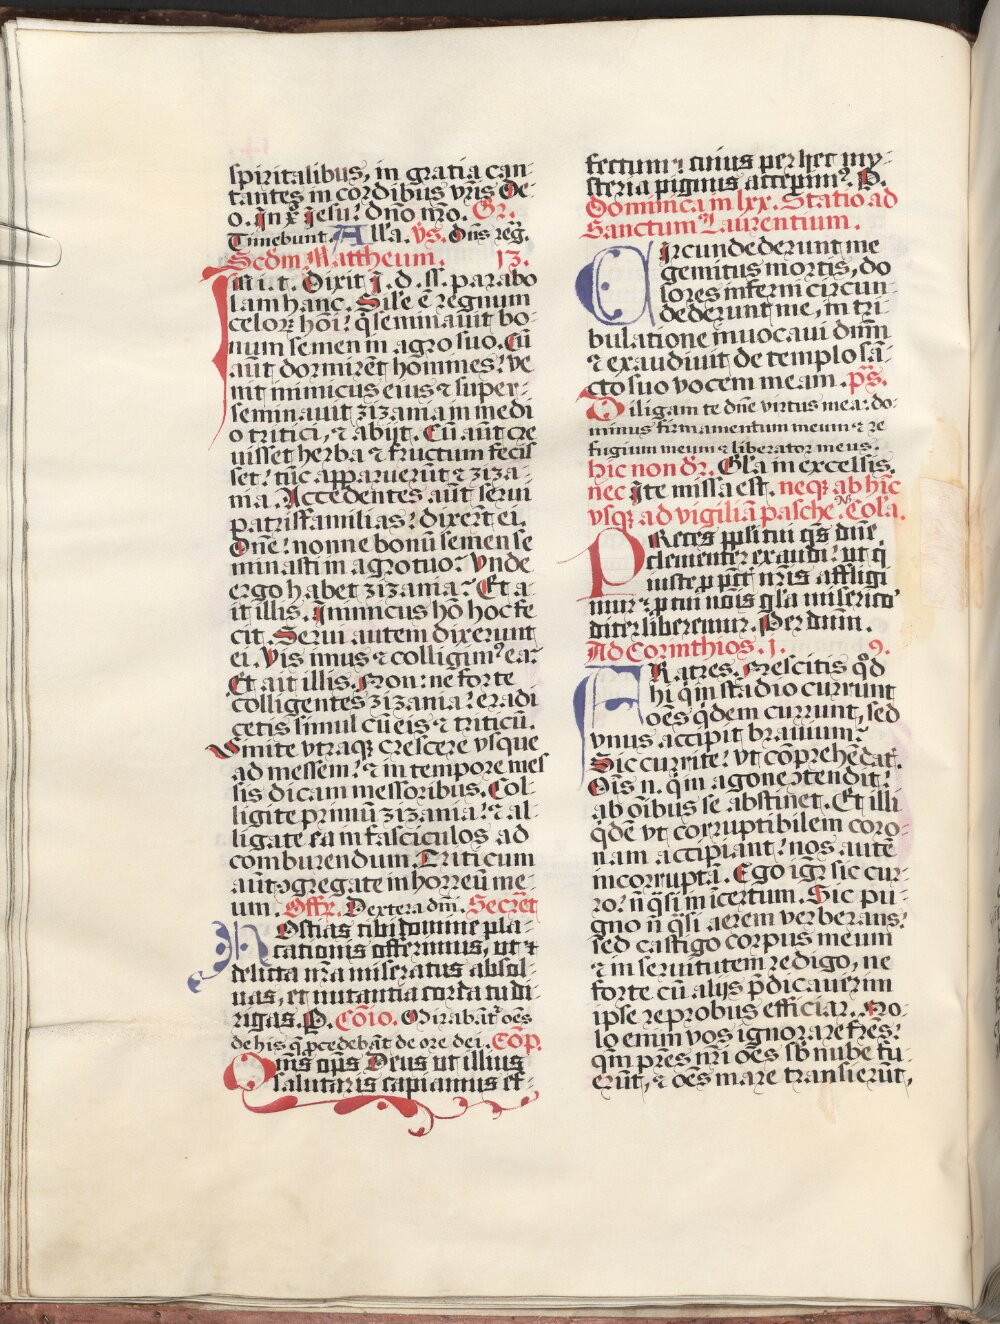 spiritalibus, in gratia can-
tantes in cordibus vr̄is De-
o. In xp̄o Iesu: dn̄o nr̄o. Gr.
Timebunt. All'a. Vs. Dn̄s reg̃.
Scdm Mattheum. 13.
In ill' t. Dixit I. d. ss. parabo
lam hanc. Sil'e ē regnum
celoꝝ hōi: q̄ seminauit bo-
num semen in agro suo. Cū
aūt dormirēt homines: ve
nit inimicus eius ⁊ super-
seminauit zizania in medi
o tritici, ⁊ abijt. Cū aūt cre
uisset herba ⁊ fructum fecis
set: tūc apparuerūt ⁊ ziza-
nia. Accedentes aūt serui
patrisfamilias: dixerūt ei.
Dn̄e: nonne bonū semen se
minasti in agro tuo: Vnde
ergo habet zizania: Et a-
it illis. Inimicus hō hoc fe
cit. Serui autem dixerunt
ei. Vis imus ⁊ colligimꝰ ea:
Et ait illis. Non: ne forte
colligentes zizania: eradi
cetis simul cū eis ⁊ triticū.
Sinite vtraqꝫ crescere vsque
ad messem: ⁊ in tempore mes
sis dicam messoribus. Col-
ligite primū zizania: ⁊ al-
ligate ea in fasciculos ad
comburendum. Triticum
aūt ↄgregate in horreū me-
um. Offr. Dextera dn̄i. Secret̄
Hostias tibi domine pla-
cationis offerimus, ut ⁊
delicta nr̄a miseratus absol-
uas, et nutantia corda tu di-
rigas. P. Cōio. Mirabāt̃ oēs
de his q̄ pcedebāt de ore dei. Cōp.
Qm̄s op̄s Deus ut illius
salutaris capiamus ef-
fectum: cuius per hec my-
steria pignus accepimꝰ. P.
Dominica in lxx. Statio ad
Sanctum Laurentium.
Circumdederunt me
gemitus mortis, do
lores inferni circun-
dederunt me, in tri-
bulatione inuocaui dnm̄
⁊ exaudiuit de templo sā-
cto suo vocem meam. ps.
Diligam te dn̄e virtus mea: do-
minus firmamentum meum ⁊ re
fugium meum ⁊ liberator meus.
hic non dr̄. Gl'a in excelsis.
nec Ite missa est. neqꝫ ab hīc
vsqꝫ ad vigiliā pasche. Col'a.
Preces ppl'i tui qs̄ dn̄e
clementer exaudi: ut q̄
iuste p pctīs nr̄is affligi
mur: p tui nōis gl'a miserico
diter liberemur. Per dnm̄.
Ad Corinthios. j. 9.
Fratres. Nescitis qd̄
hi q̄ in stadio currunt
oēs qdem currunt, sed
vnus accipit brauium:
Sic currite: vt cōprehēdat.
Oīs n. q̄ in agone ↄtendit:
ab oībus se abstinet. Et illi
qdē vt corruptibilem coro-
nam accipiant: nos autē
incorruptā. Ego igr̄ sic cur-
ro: n̄ q̄si in īcertum. Sic pu-
gno n̄ q̄si aerem verberans:
sed castigo corpus meum
⁊ in seruitutem redigo, ne
forte cū alijs p̄dicauerim
ipse reprobus efficiar. No-
lo enim vos ignorare fr̄es:
qm̄ pr̄es nr̄i oēs sb̄ nube fu-
erūt, ⁊ oēs mare transierūt,